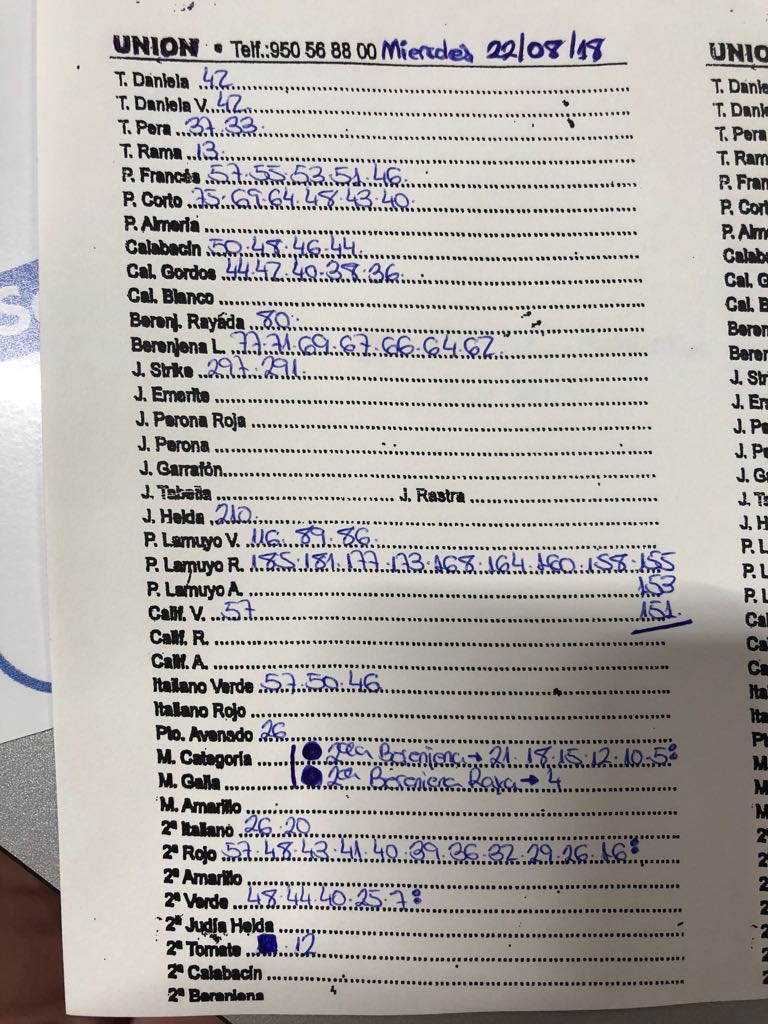 UNION • Telf.:950 56 88 00 Miercoles 22/08/18
T. Daniela 42
T. Daniela V. 42
T. Pera 37.33
T. Rama 13
P. Francés 57.55.53.51.46
P. Corto 75.69.64.48.43.40
P. Almería
Calabacín 50.48.46.44
Cal. Gordos 44.42.40.38.36
Cal. Blanco
Berenj. Rayada 80
Berenjena L. 77.71.69.67.66.64.62
J. Strike 297.291
J. Emerite
J. Perona Roja
J. Perona
J. Garrafón
J. Tabella J. Rastra
J. Helda 210
P. Lamuyo V. 116.89.86
P. Lamuyo R. 185.181.177.173.168.164.160.158.155
P. Lamuyo A. 153
Calif. V. 57 151
Calif. R.
Calif. A.
Italiano Verde 57.50.46
Italiano Rojo
Pto. Avanado 26
M. Categoría Berenjena → 21.18.15.12.10.5
M. Galia Raya → 4
M. Amarillo
2ª Italiano 26.20
2ª Rojo 57.48.43.41.40.39.36.32.29.26.16
2ª Amarillo
2ª Verde 48.44.40.25.7
2ª Judía Helda
2ª Tomate 12
2ª Calabacín
2ª Berenjena
UNIO
T. Danie
T. Dani
T. Pera
T. Ram
P. Fran
P. Cort
P. Alm
Calab
Cal. G
Cal. B
Beren
Berer
J. Str
J. En
J. Pe
J. Pe
J. G
J. T
J. H
P. L
P. L
P. L
Cal
Ca
Ca
Ita
Ita
Pt
M
M
M
2
2
2
2
2
2
2